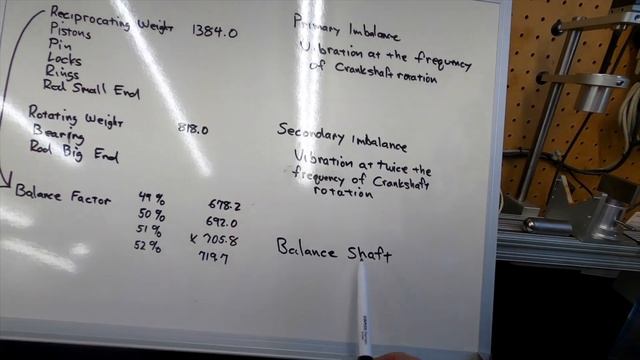 Reciprocating Weight 1384.0
Pistons
Pin
Locks
Rings
Rod Small End
Rotating Weight 818.0
Bearing
Rod Big End
Balance Factor 49% 678.2
50% 692.0
51% x 705.8
52% 719.7
Primary Imbalance
Vibration at the frequency
of Crankshaft rotation
Secondary Imbalance
Vibration at twice the
frequency of Crankshaft
rotation
Balance Shaft